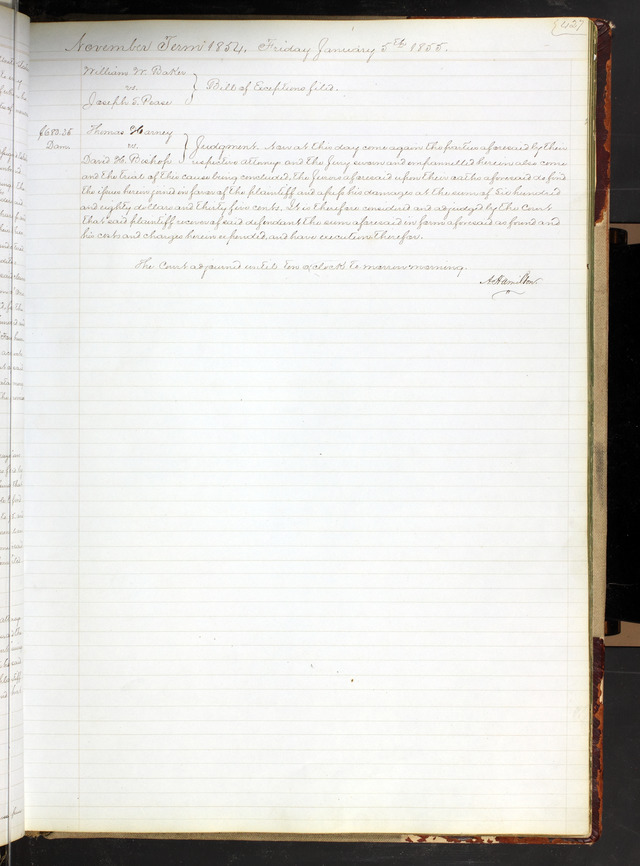 427
November Term 1854, Friday January 5th 1855.
William W. Baker
vs.
Joseph S. Pease
} Bill of Exceptions filed.
$680.35
Dam
Thomas Harney
vs.
David H. Bishop
} Judgment. Now at this day come again the parties aforesaid by their
respective attorneys and the Jury sworn and empannelled herein also come
and the trial of this cause being concluded, the Jurors aforesaid upon their oaths aforesaid do find
the issues herein joined in favor of the plaintiff and assess his damages at the sum of Six hundred
and eighty dollars and thirty five cents. It is therefore considered and adjudged by the Court
that said plaintiff recover of said defendant the sum aforesaid in form aforesaid as found and
his costs and charges herein expended, and have execution therefor.
The Court adjourned until ten o'clock to morrow morning.
A. Hamilton